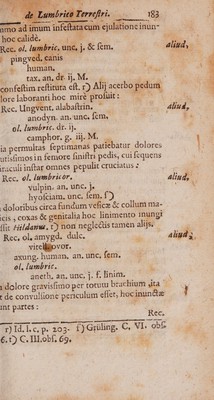 de Lumbrico Terrestri. 183
omo ad imum infestata cum ejulatione inun-
hoc calidè.
Rec. ol. lumbric. unc. j. & sem. aliud,
pingved. canis
human.
tax. an. dr. ij. M.
confestim restituta est. r) Alij acerbo pedum
lore laboranti hoc mirè profuit:
Rec. Ungvent. alabastrin. aliud,
anodyn. an. unc. sem.
ol. lumbric. dr. ij.
camphor. g. iij. M.
ia permultas septimanas patiebatur dolores
utissimos in femore sinistri pedis, cui sequens
iraculi instar omnes pepulit cruciatus:
Rec. ol. lumbricor. aliud,
vulpin. an. unc. j.
hyosciam. unc. sem.
doloribus circa fundum vesicæ & collum ma-
icis, coxas & genitalia hoc linimento mungi
sit Hildanus. t) non neglectis tamen alijs.
Rec. ol. amygd. dulc. aliud,
vitell. ovor.
axung. human. an. unc. sem.
ol. lumbric.
aneth. an. unc. j. f. linim.
dolore gravissimo per totum brachium ita
t de convulsione periculum esset, hoc inunctæ
unt partes:
Rec.
r) Id. l. c. p. 203. f) Grüling. C. VI. obs.
6. t) C. III. obs. 69.